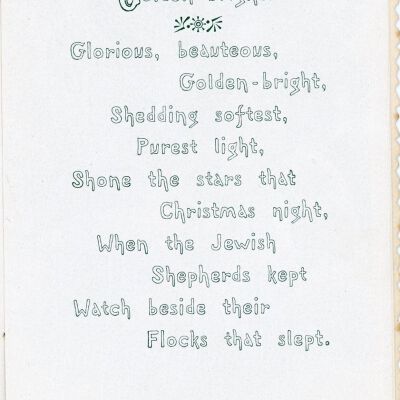 Glorious, beauteous,
Golden-bright,
Shedding softest,
Purest light,
Shone the stars that
Christmas night,
When the Jewish
Shepherds kept
Watch beside their
Flocks that slept.